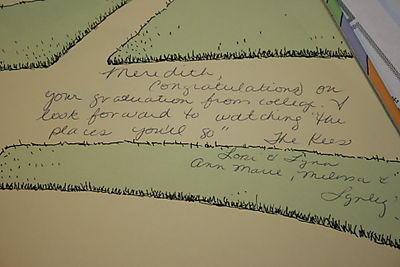 Meredith,
Congratulations on
your graduation from college. I
look forward to watching "the
places you'll go" The Rees
Lori & Lynn
Ann Marie, Melissa &
Lynley